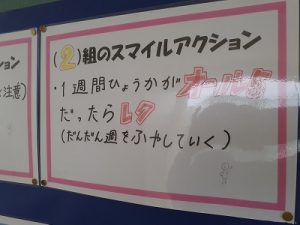 ション
注意)
(2)組のスマイルアクション
・1週間ひょうかがオール5
だったらレク
(だんだん週をふやしていく)